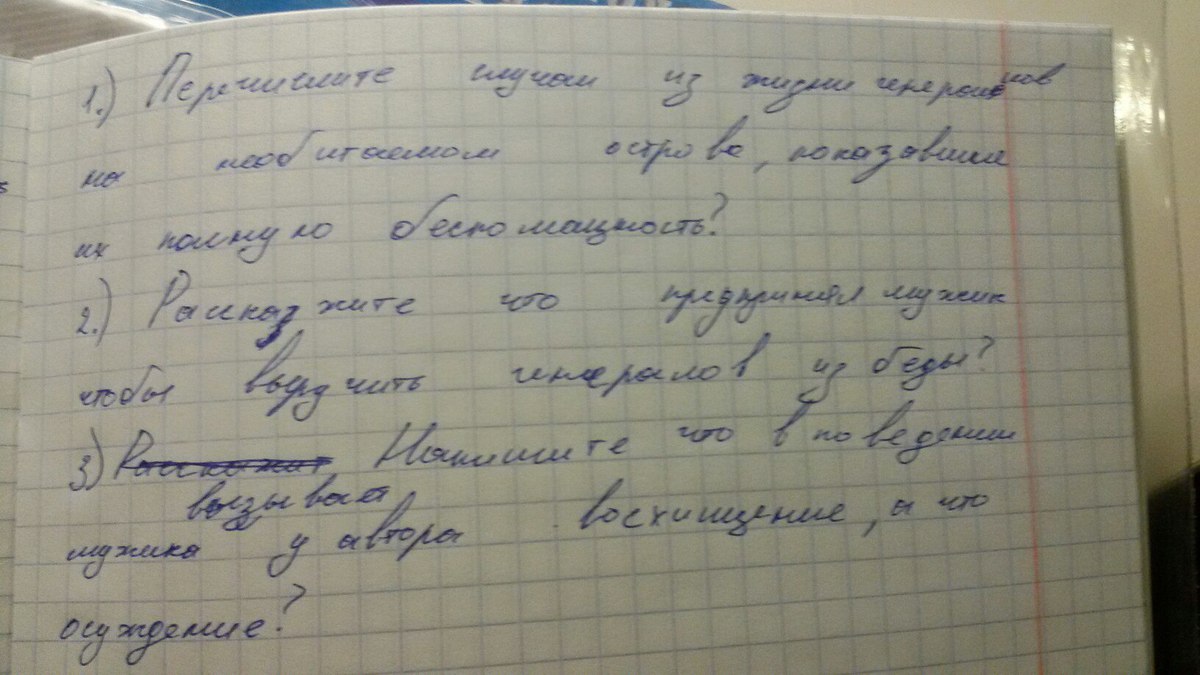 1.) Перечислите случаи из жизни генералов
на необитаемом острове, показавшие
их полную беспомощность?
2.) Расскажите что предпринял мужик
чтобы выручить генералов из беды?
3) Напишите что в поведении
вызывает
мужика у автора восхищение, а что
осуждение?